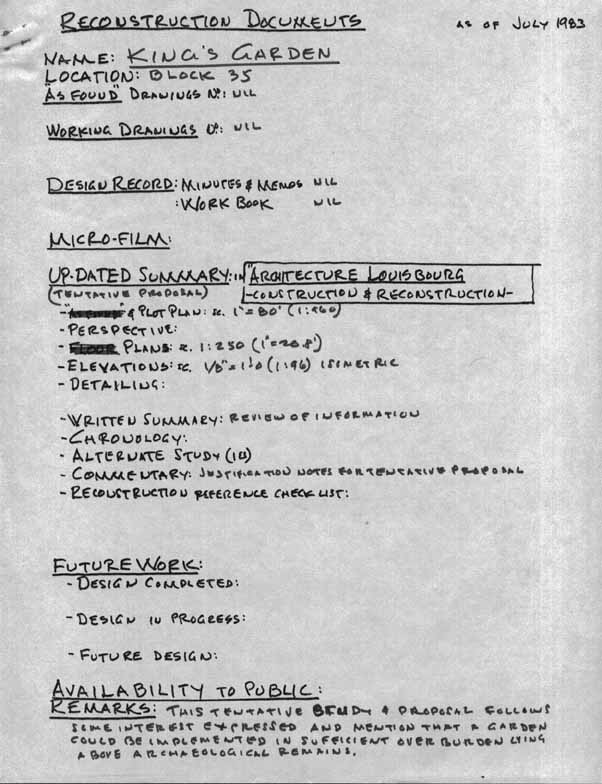 RECONSTRUCTION DOCUMENTS AS OF JULY 1983
NAME: KING'S GARDEN
LOCATION: BLOCK 35
"AS FOUND" DRAWINGS No: NIL
WORKING DRAWINGS No: NIL
DESIGN RECORD: MINUTES & MEMOS NIL
: WORK BOOK NIL
MICRO-FILM:
UP-DATED SUMMARY: IN "ARCHITECTURE LOUISBOURG
(TENTATIVE PROPOSAL) -CONSTRUCTION & RECONSTRUCTION-
- & PLOT PLAN: sc. 1"=80' (1:960)
- PERSPECTIVE:
- PLANS: sc. 1:250 (1"=20.8')
- ELEVATIONS: sc. 1/8"=1'0 (1:96) ISOMETRIC
- DETAILING:
- WRITTEN SUMMARY: REVIEW OF INFORMATION
- CHRONOLOGY:
- ALTERNATE STUDY
- COMMENTARY: JUSTIFICATION NOTES FOR TENTATIVE PROPOSAL
- RECONSTRUCTION REFERENCE CHECK LIST:
FUTURE WORK:
- DESIGN COMPLETED:
- DESIGN IN PROGRESS:
- FUTURE DESIGN:
AVAILABILITY TO PUBLIC:
REMARKS: THIS TENTATIVE STUDY & PROPOSAL FOLLOWS
SOME INTEREST EXPRESSED AND MENTION THAT A GARDEN
COULD BE IMPLEMENTED IN SUFFICIENT OVERBURDEN LYING
ABOVE ARCHAEOLOGICAL REMAINS.